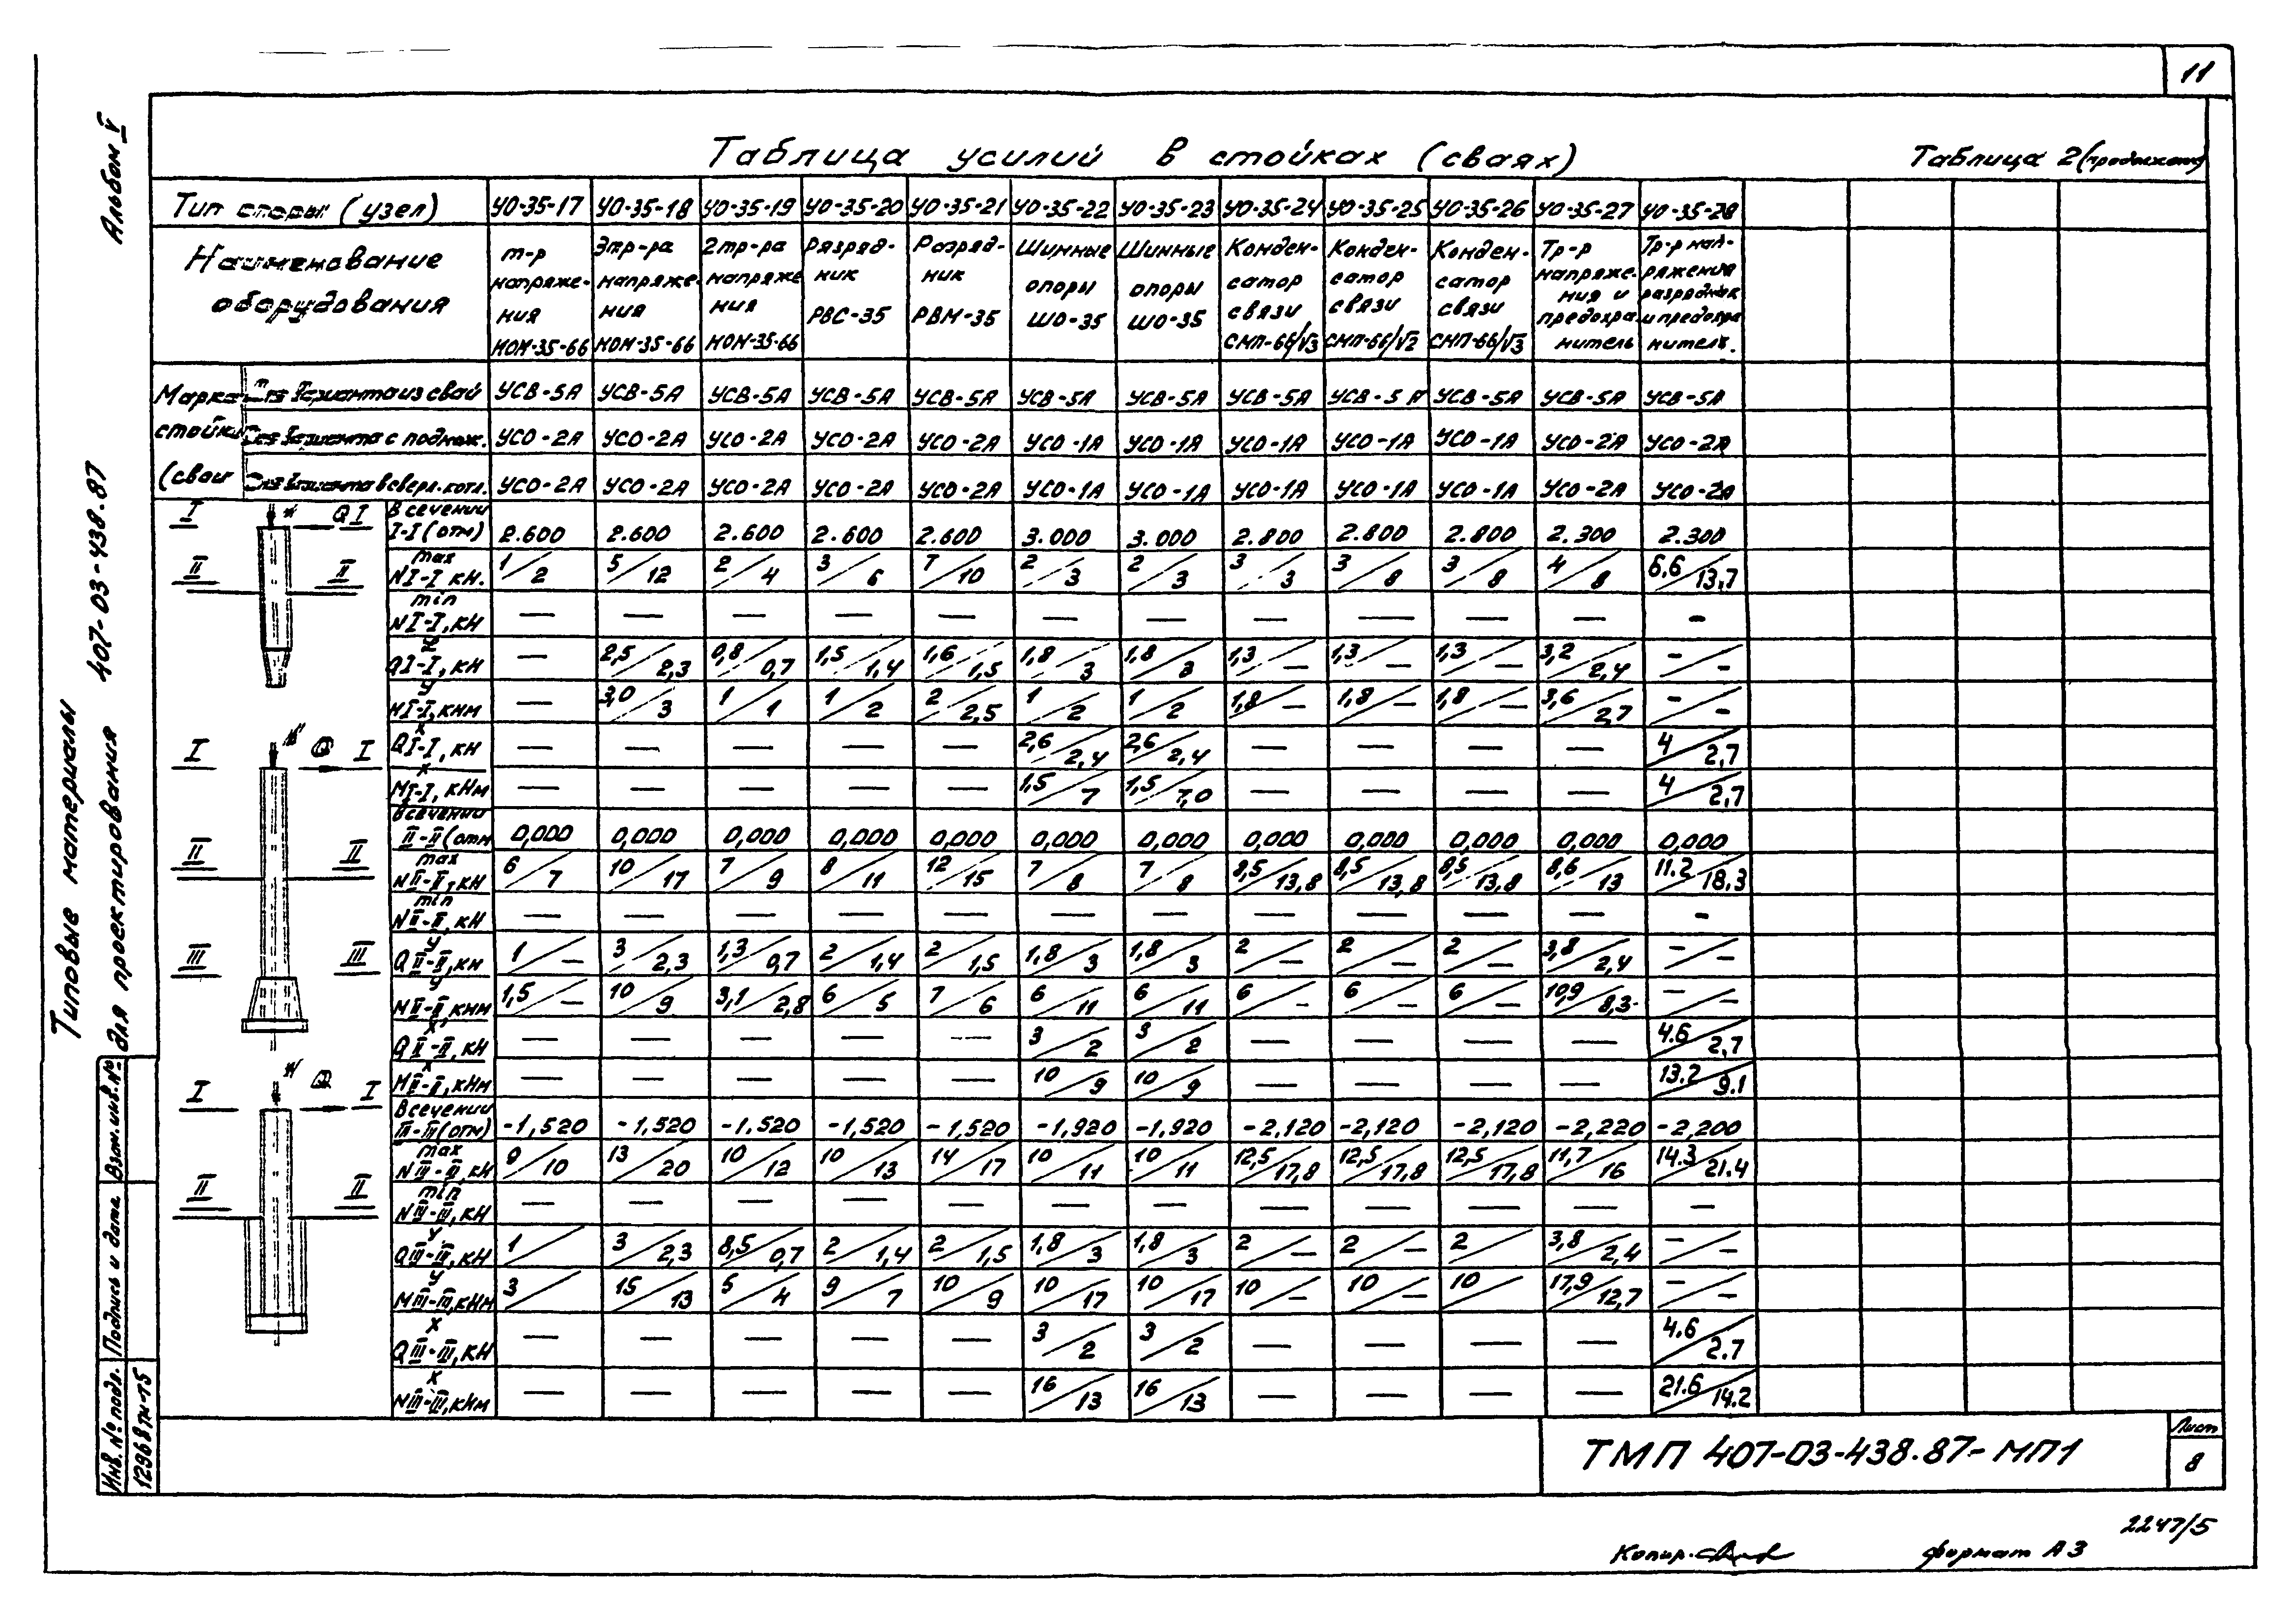 11
Альбом V
Таблица усилий в стойках (сваях)
Таблица 2 (продолжение)
Тип опоры (узел) УО-35-17 УО-35-18 УО-35-19 УО-35-20 УО-35-21 УО-35-22 УО-35-23 УО-35-24 УО-35-25 УО-35-26 УО-35-27 УО-35-28
Наименование оборудования
т-р напряже-ния НОМ-35-66
3тр-ра напряже-ния НОМ-35-66
2тр-ра напряже ния НОМ-35-66
Разряд-ник РВС-35
Разряд-ник РВМ-35
Шинные опоры ШО-35
Шинные опоры ШО-35
Конден-сатор связи СМП-66/√3
Конден-сатор связи СМП-66/√2
Конден-сатор связи СМП-66/√3
Тр-р напряже-ния и предохра нитель
Тр-р нап-ряжения разрядник и предохра нитель.
Марка стойки (сваи
Для варианта из свай УСВ-5А УСВ-5А УСВ-5А УСВ-5А УСВ-5А УСВ-5А УСВ-5А УСВ-5А УСВ-5А УСВ-5А УСВ-5А УСВ-5А
Для варианта с поднож. УСО-2А УСО-2А УСО-2А УСО-2А УСО-2А УСО-1А УСО-1А УСО-1А УСО-1А УСО-1А УСО-2А УСО-2А
Для варианта в сверл. котл. УСО-2А УСО-2А УСО-2А УСО-2А УСО-2А УСО-1А УСО-1А УСО-1А УСО-1А УСО-1А УСО-2А УСО-2А
В сечении I-I (отм) 2.600 2.600 2.600 2.600 2.600 3.000 3.000 2.800 2.800 2.800 2.300 2.300
max NI-I кН. 1/2 5/12 2/4 3/6 7/10 2/3 2/3 3/3 3/8 3/8 4/8 6.6/13,7
min NI-I, кН — — — — — — — — — — — -
QI-I, кН — 2,5/2,3 0,8/0,7 1,5/1,4 1,6/1,5 1,8/3 1,8/3 1,3/— 1,3/— 1,3/— 3,2/2,4 -/-
У МI-I, кНм — 3,0/3 1/1 1/2 2/2,5 1/2 1/2 1,8/— 1,8/— 1,8/— 3,6/2,7 -/-
х QI-I, кН — — — — — 2,6/2,4 2,6/2,4 — — — — 4/2,7
х МI-I, кНм — — — — — 1,5/7 1,5/7,0 — — — — 4/2,7
В сечении II-II (отм 0,000 0,000 0,000 0,000 0,000 0,000 0,000 0,000 0,000 0,000 0,000 0,000
max NII-II, кН 6/7 10/17 7/9 8/11 12/15 7/8 7/8 8,5/13,8 8,5/13,8 8,5/13,8 8,6/13 11.2/18.3
min NII-II, кН — — — — — — — — — — — -
У QII-II, кН 1/— 3/2,3 1,3/0,7 2/1,4 2/1,5 1,8/3 1,8/3 2/— 2/— 2/— 3,8/2,4 -/-
У МII-II, кНм 1,5/— 10/9 3,1/2,8 6/5 7/6 6/11 6/11 6/— 6/— 6/— 10,9/8,3 -/-
х QII-II, кН — — — — — 3/2 3/2 — — — — 4.6/2,7
х МII-II, кНм — — — — — 10/9 10/9 — — — — 13.2/9.1
В сечении III-III (отм) -1,520 -1,520 -1,520 -1,520 -1,520 -1,920 -1,920 -2,120 -2,120 -2,120 -2,220 -2,200
max NIII-III, кН 9/10 13/20 10/12 10/13 14/17 10/11 10/11 12,5/17,8 12,5/17,8 12,5/17,8 11,7/16 14.3/21.4
min NIII-III, кН — — — — — — — — — — — —
У QIII-III, кН 1/ 3/2,3 8,5/0,7 2/1,4 2/1,5 1,8/3 1,8/3 2/— 2/— 2/ 3,8/2,4 -/-
У МIII-III, кНм 3/ 15/13 5/4 9/7 10/9 10/17 10/17 10/— 10/— 10/ 17,9/12,7 -/-
х QIII-III, кН — — — — — 3/2 3/2 — — — — 4.6/2.7
х NIII-III, кНм — — — — — 16/13 16/13 — — — — 21.6/14.2
I N QI
II II
I N Q I
II II
III III
I N Q I
II II
Типовые материалы
для проектирования 407-03-438.87
Взам.инв.№
Подпись и дата
Инв. № подл.
12968тм-т5
ТМП 407-03-438.87-МП1
Лист
8
2247/5
Копир.
формат А3